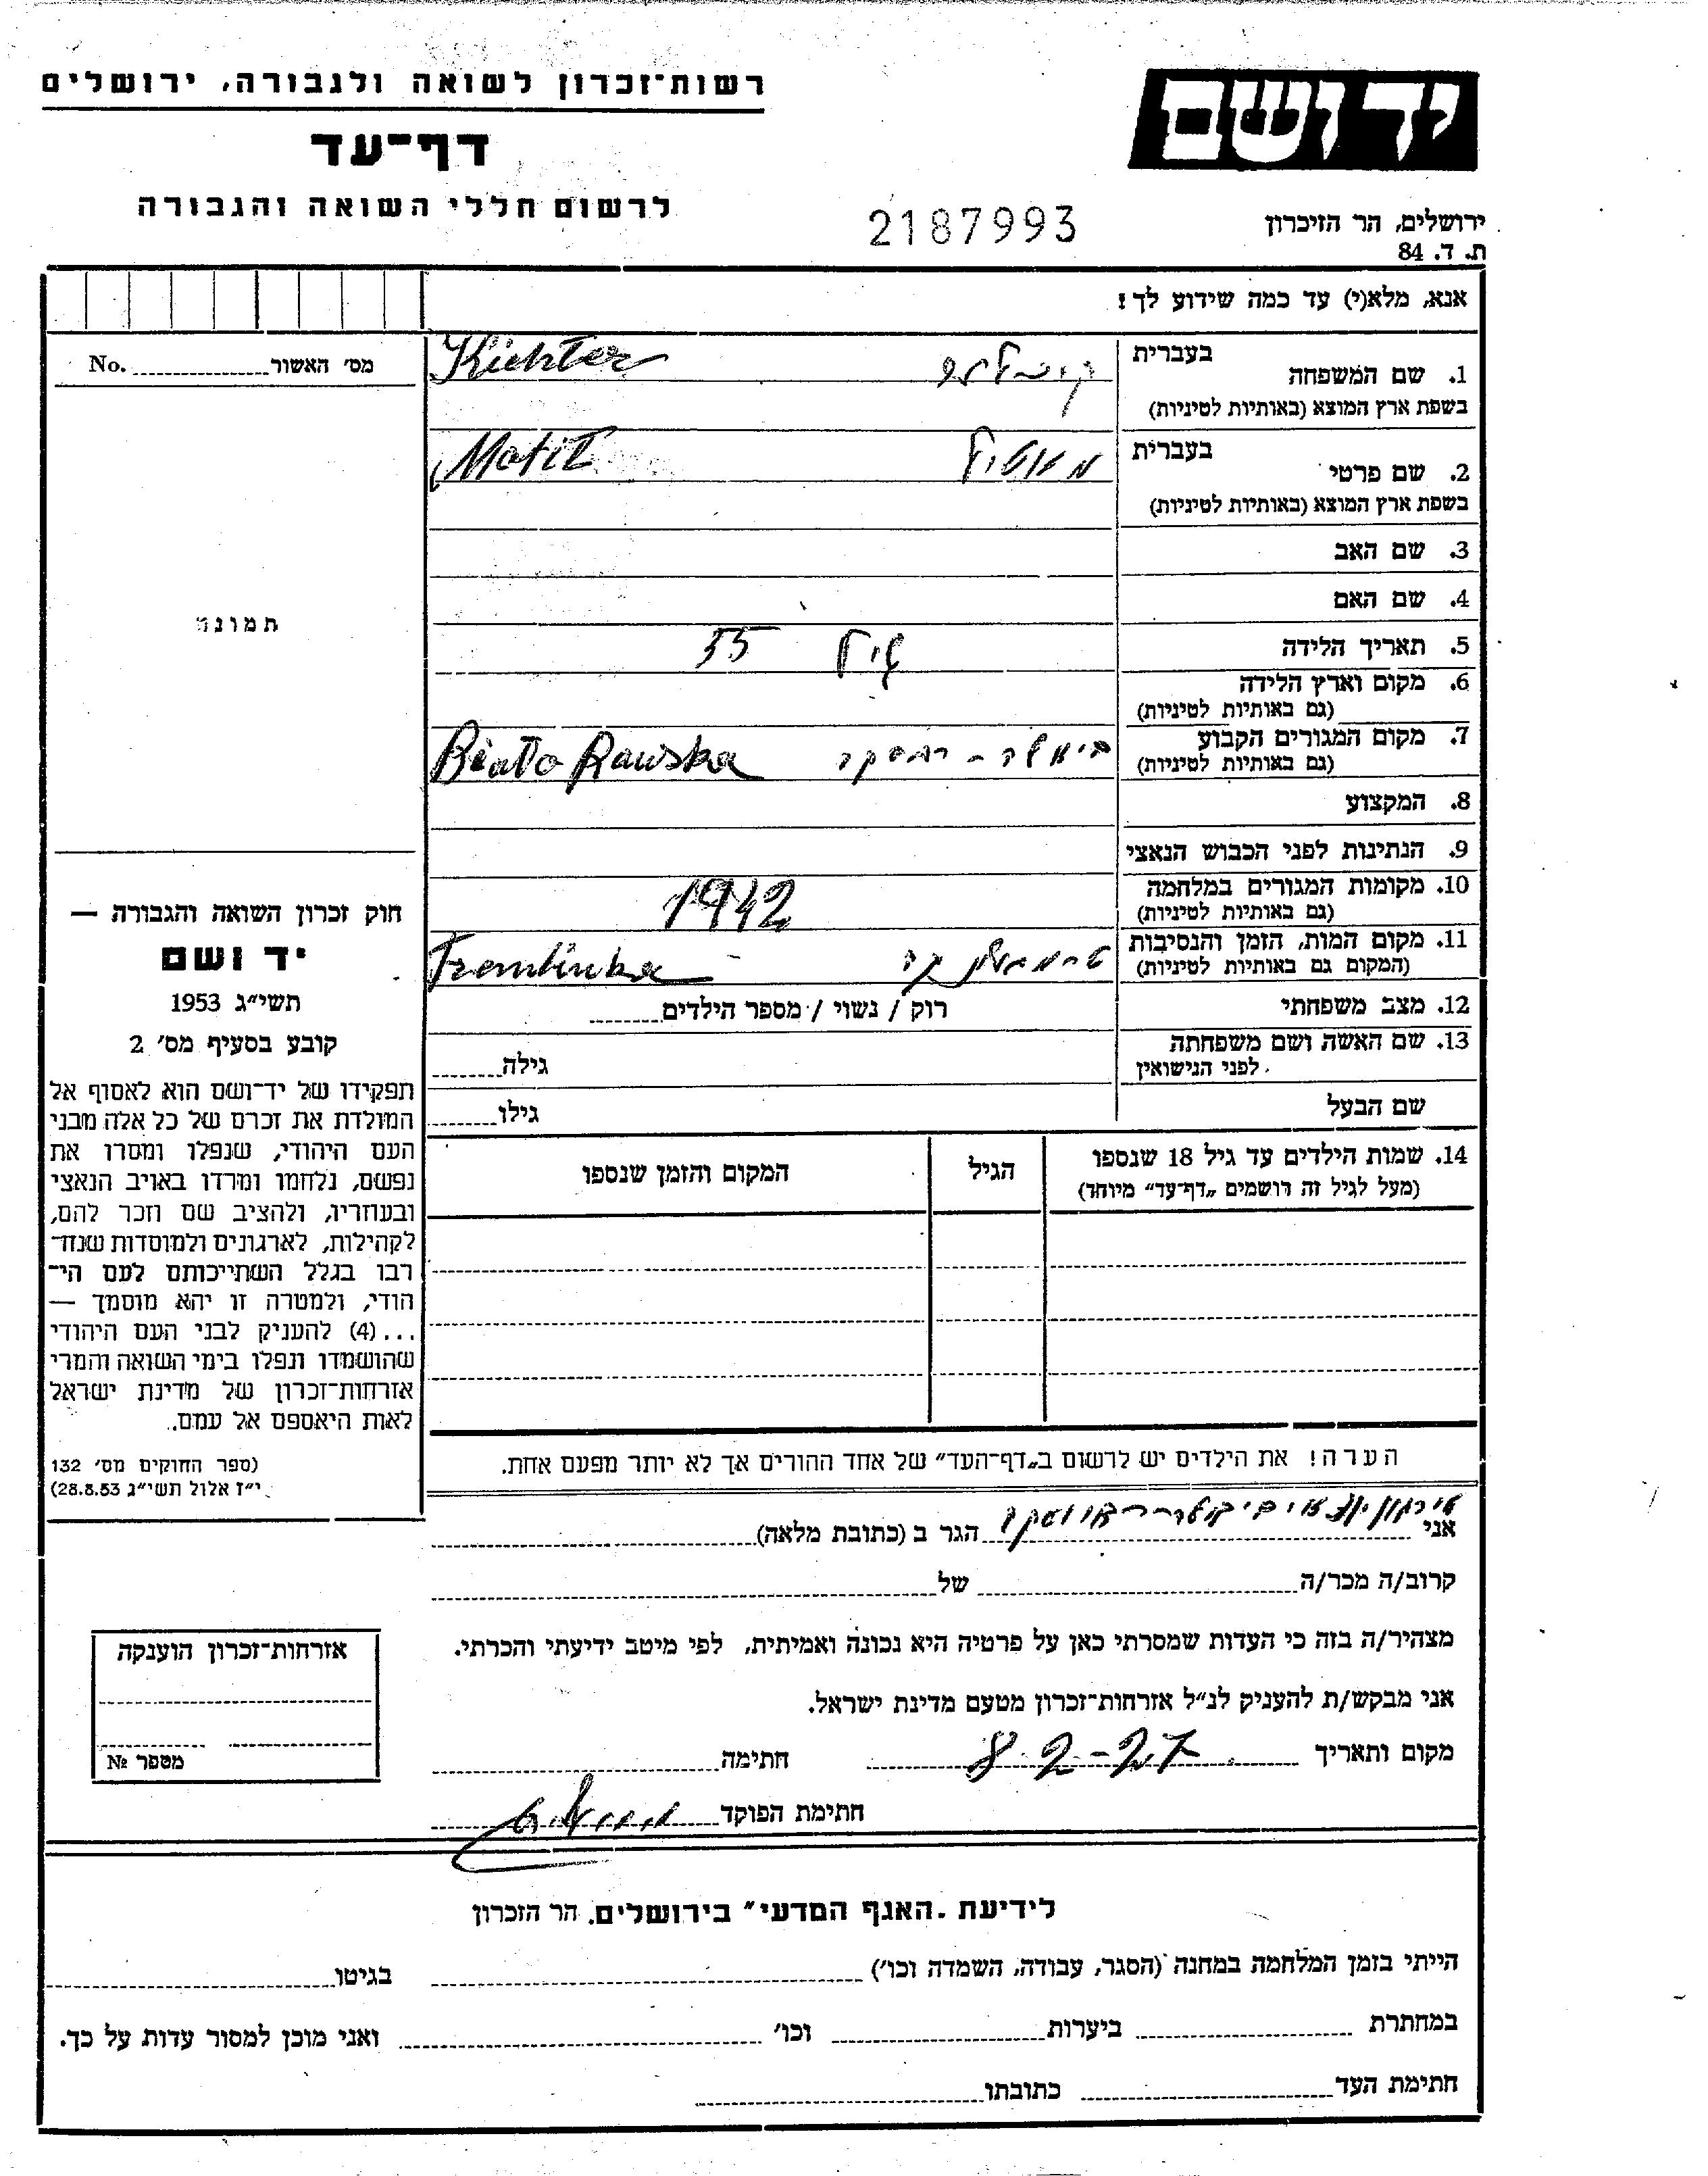 רשות־זכרון לשואה ולגבורה, ירושלים
יד ושם
דף־עד
לרשום חללי השואה והגבורה
2187993
ירושלים, הר הזיכרון
ת. ד. 84
אנא, מלא(י) עד כמה שידוע לך!
מס׳ האשור No.
תמונה
בעברית
1. שם המשפחה
בשפת ארץ המוצא (באותיות לטיניות)
Kichter
בעברית
2. שם פרטי
בשפת ארץ המוצא (באותיות לטיניות)
מאטיל Matil
3. שם האב
4. שם האם
5. תאריך הלידה
גיל 55
6. מקום וארץ הלידה
(גם באותיות לטיניות)
7. מקום המגורים הקבוע
(גם באותיות לטיניות)
ביאלה - רווסקה Biala Rawska
8. המקצוע
9. הנתינות לפני הכבוש הנאצי
10. מקומות המגורים במלחמה
(גם באותיות לטיניות)
1942
11. מקום המות, הזמן והנסיבות
(המקום גם באותיות לטיניות)
טרמבלינקה Tremblinka
12. מצב משפחתי
רוק / נשוי / מספר הילדים
13. שם האשה ושם משפחתה
לפני הנישואין
גילה
שם הבעל
גילו
14. שמות הילדים עד גיל 18 שנספו
(מעל לגיל זה רושמים „דף־עד״ מיוחד)
הגיל
המקום והזמן שנספו
חוק זכרון השואה והגבורה —
יד ושם
תשי״ג 1953
קובע בסעיף מס׳ 2
תפקידו של יד־ושם הוא לאסוף אל
המולדת את זכרם של כל אלה מבני
העם היהודי, שנפלו ומסרו את
נפשם, נלחמו ומרדו באויב הנאצי
ובעוזריו, ולהציב שם וזכר להם,
לקהילות, לארגונים ולמוסדות שנח־
רבו בגלל השתייכותם לעם הי־
הודי, ולמטרה זו יהא מוסמך —
...(4) להעניק לבני העם היהודי
שהושמדו ונפלו בימי השואה והמרי
אזרחות־זכרון של מדינת ישראל
לאות היאספם אל עמם.
(ספר החוקים מס׳ 132
י״ז אלול תשי״ג 28.8.53)
הערה! את הילדים יש לרשום ב„דף־העד״ של אחד ההורים אך לא יותר מפעם אחת.
אני ארגון יוצאי ביאלה־ראווסקה הגר ב (כתובת מלאה)
קרוב/ה מכר/ה של
מצהיר/ה בזה כי העדות שמסרתי כאן על פרטיה היא נכונה ואמיתית, לפי מיטב ידיעתי והכרתי.
אני מבקש/ת להעניק לנ״ל אזרחות־זכרון מטעם מדינת ישראל.
מקום ותאריך חתימה
חתימת הפוקד
אזרחות־זכרון הוענקה
מספר №
לידיעת „האגף המדעי״ בירושלים, הר הזכרון
הייתי בזמן המלחמה במחנה (הסגר, עבודה, השמדה וכו׳) בגיטו
במחתרת ביערות וכו׳ ואני מוכן למסור עדות על כך.
חתימת העד כתובתו